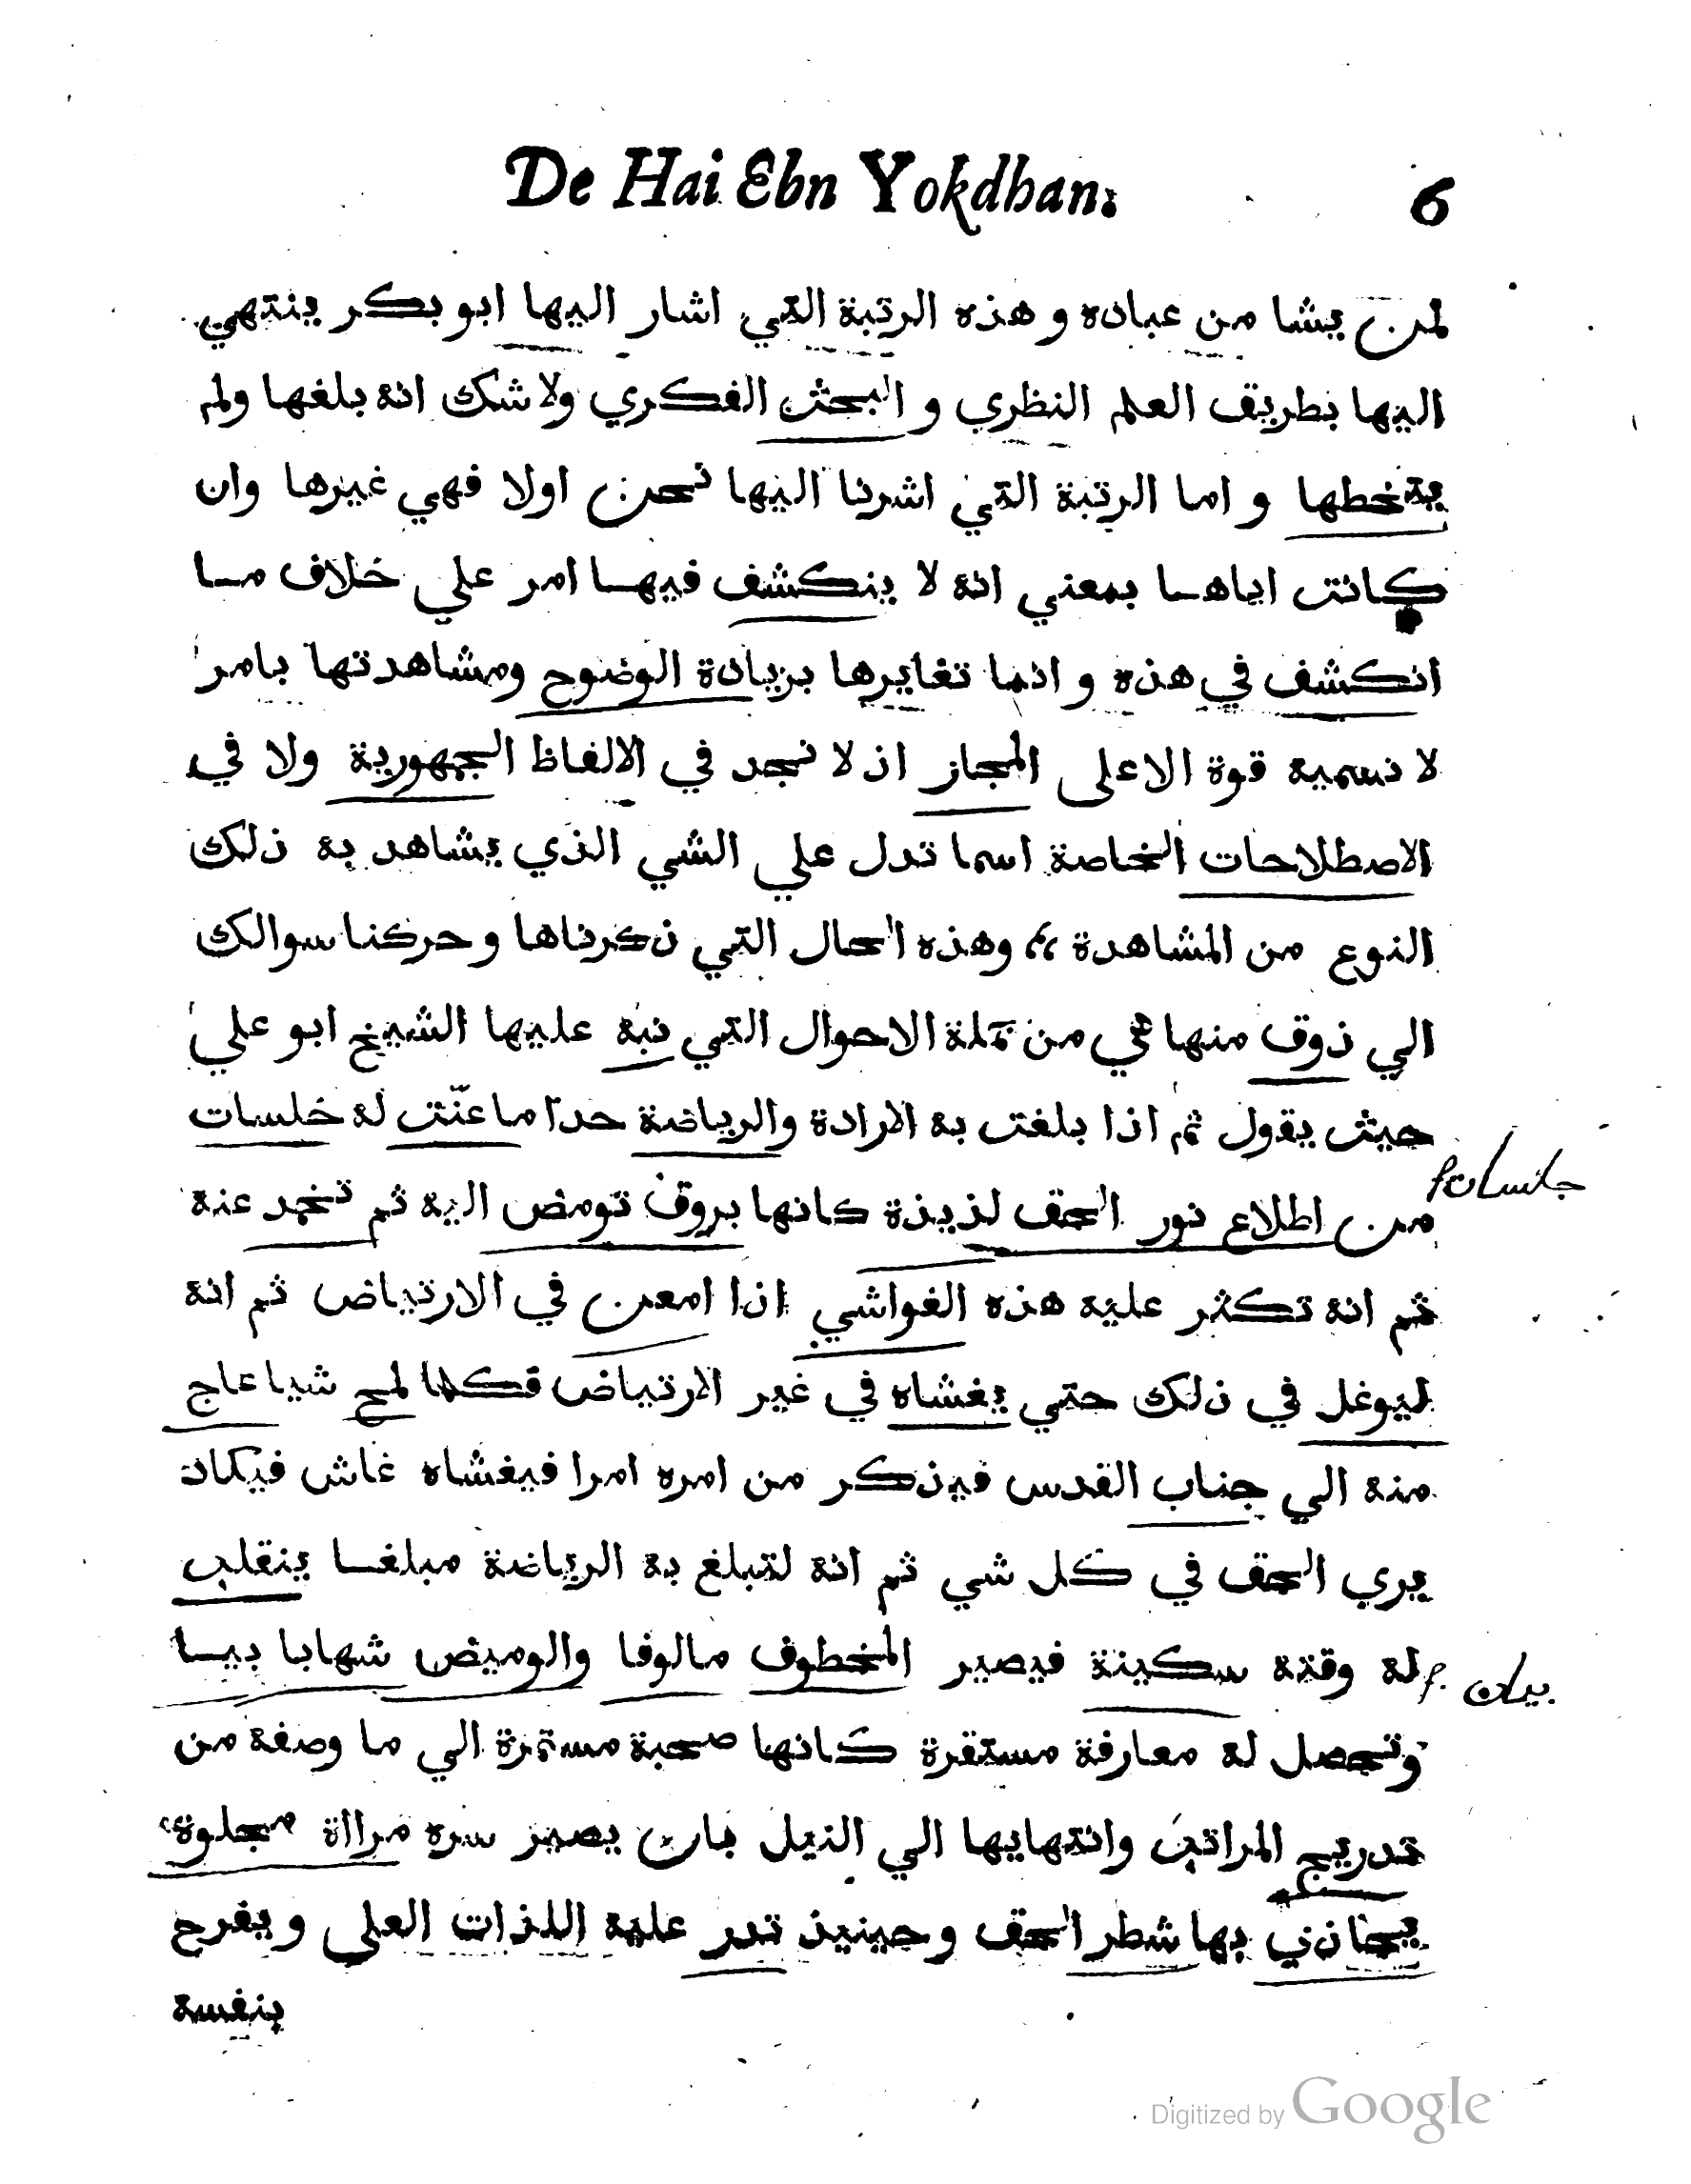 De Hai Ebn Yokdhan. 6
لمن يشا من عباده و هذه الرتبة التي اشار اليها ابو بكر ينتهي
اليها بطريق العلم النظري و البحث الفكري ولا شك انه بلغها ولم
يتخطها و اما الرتبة التي اشرنا اليها نحن اولا فهي غيرها وان
كانت اياها بمعني انه لا ينكشف فيها امر علي خلاف ما
انكشف في هذه و انما تغايرها بزيادة الوضوح ومشاهدتها بامر
لا نسميه قوة الا علي المجاز اذ لا نجد في الالفاظ الجمهورية ولا في
الاصطلاحات الخاصة اسما تدل علي الشي الذي يشاهد به ذلك
النوع من المشاهدة وهذه الحال التي ذكرناها و حركنا سوالك
الي ذوق منها هي من جملة الاحوال التي نبه عليها الشيخ ابو علي
حيث يقول ثم اذا بلغت به الارادة والرياضة حدا ما عنّت له خلسات
من اطلاع نور الحق لذيذة كانها بروق تومض اليه ثم تخمد عنه
ثم انه تكثر عليه هذه الغواشي اذا امعن في الارتياض ثم انه
ليوغل في ذلك حتي يغشاه في غير الارتياض فكلما لمح شيا عاج
منه الي جناب القدس فيذكر من امره امرا فيغشاه غاش فيكاد
يري الحق في كل شي ثم انه لتبلغ به الرياضة مبلغا ينقلب
له وقته سكينة فيصير المخطوف مالوفا والوميض شهابا بيسا
وتحصل له معارفة مستقرة كانها صحبة مستمرة الي ما وصفه من
تدريج المراتب وانتهايها الي النيل بان يصير سره مرااة مجلوة
يحاذي بها شطر الحق و حينيذ تدر عليه اللذات العلي و يفرح
بنفسه
Digitized by Google